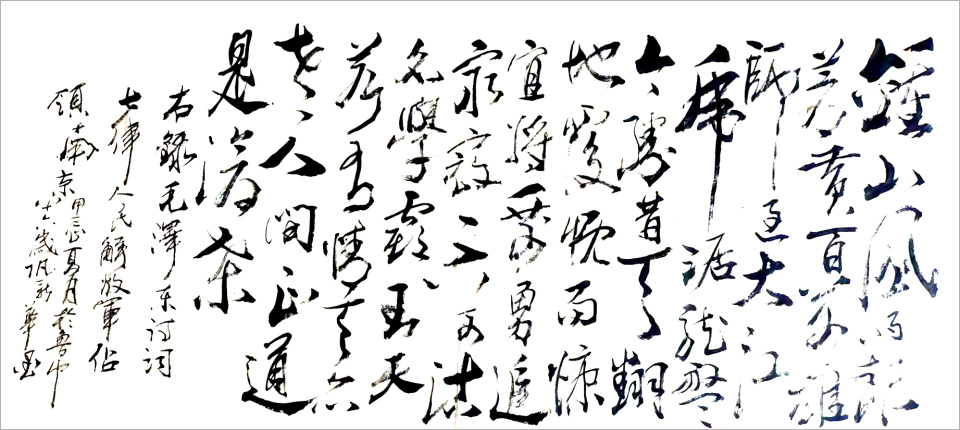 鍾山風雨起
蒼黄百萬雄
師過大江
虎踞龍盤
今勝昔天翻
地覆慨而慷
宜將剩勇追
窮寇不可沽
名學霸王天
若有情天亦
老人間正道
是滄桑
右錄毛澤东詩詞
七律 人民解放軍佔
領南京 甲辰夏月於魯中
歲 新華